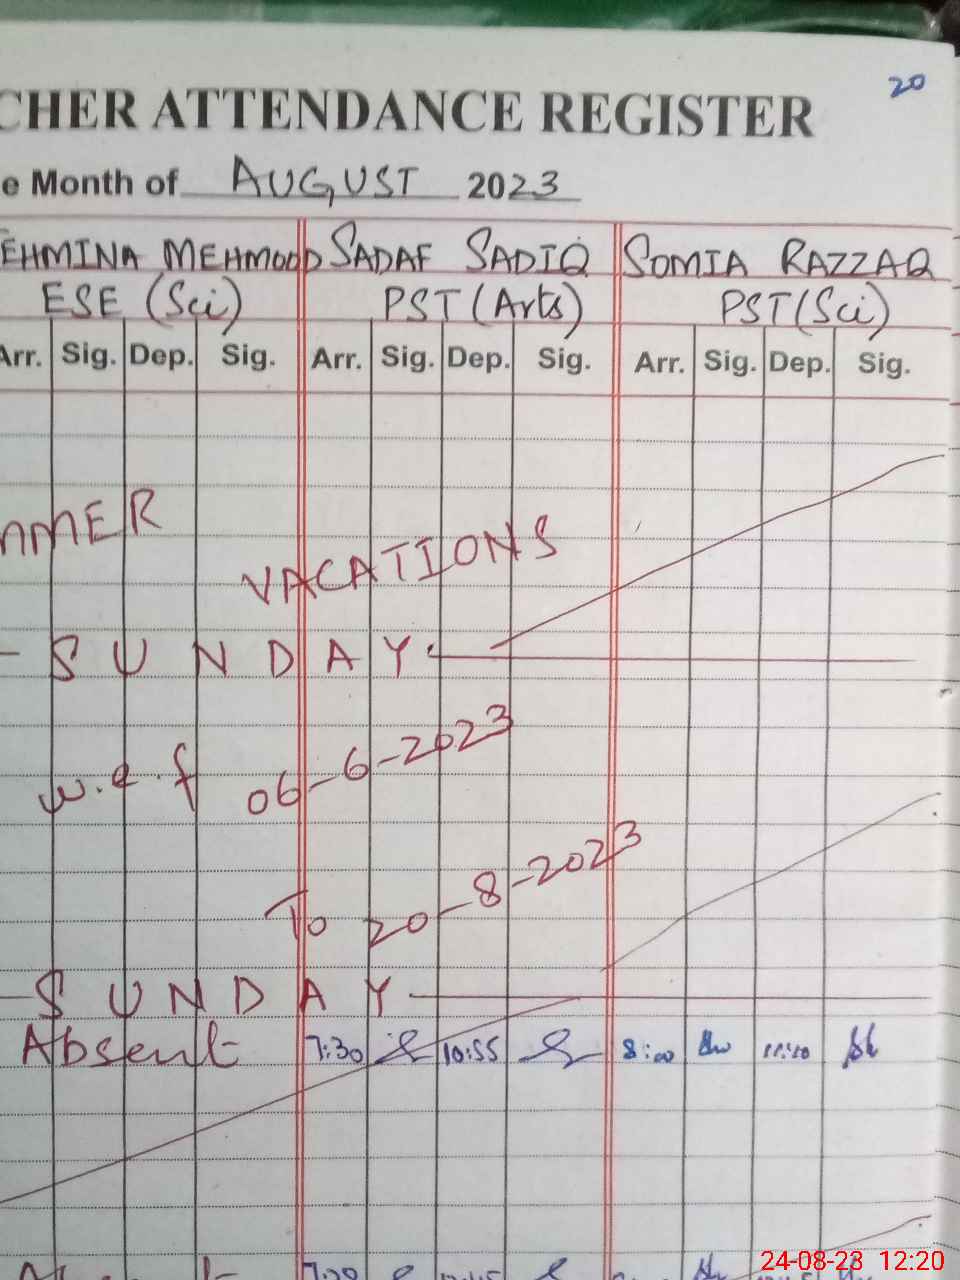 20
CHER ATTENDANCE REGISTER
e Month of AUGUST 2023
EHMINA MEHMOOD SADAF SADIQ SOMIA RAZZAQ
ESE (Sci) PST (Arts) PST (Sci)
Arr. Sig. Dep. Sig. Arr. Sig. Dep. Sig. Arr. Sig. Dep. Sig.
MMER
VACATIONS
SUNDAY
w.e.f 06-6-2023
To 20-8-2023
SUNDAY
Absent 7:30 10:55 8:00
24-08-23 12:20